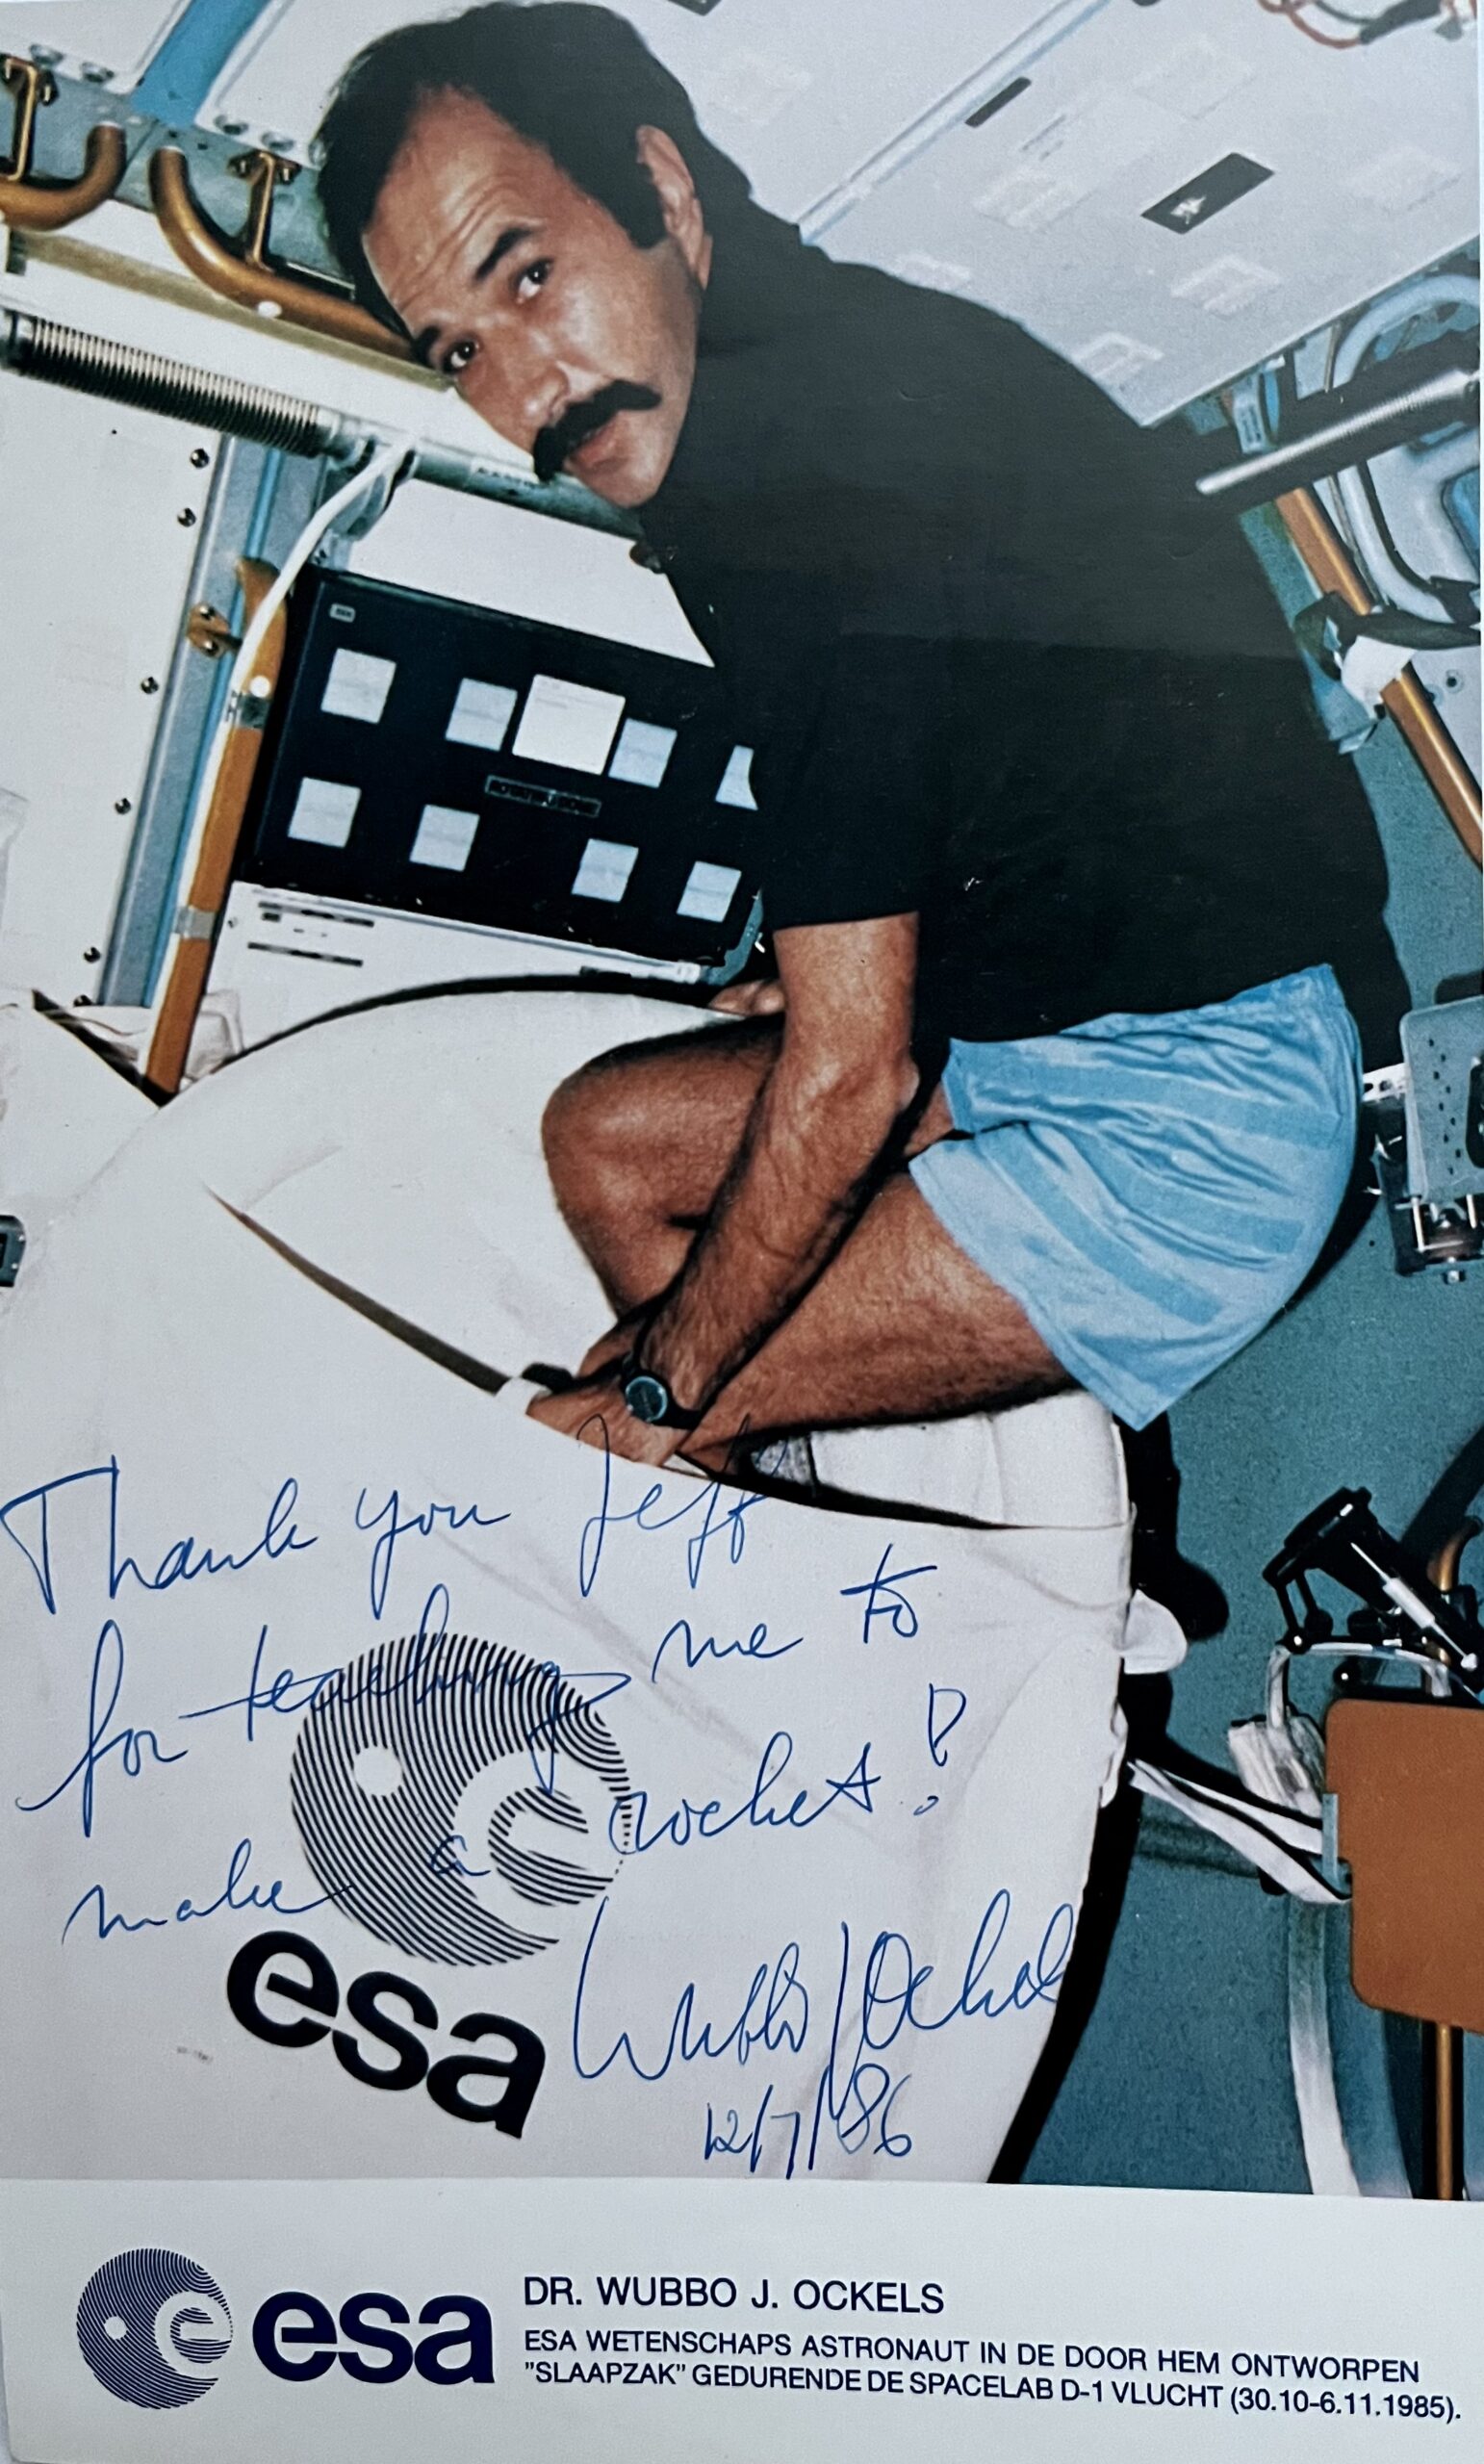 Thank you Jeff
for teaching me to
make a rocket!
esa
Wubbo J Ockels
12/7/86
esa
DR. WUBBO J. OCKELS
ESA WETENSCHAPS ASTRONAUT IN DE DOOR HEM ONTWORPEN
"SLAAPZAK" GEDURENDE DE SPACELAB D-1 VLUCHT (30.10-6.11.1985).